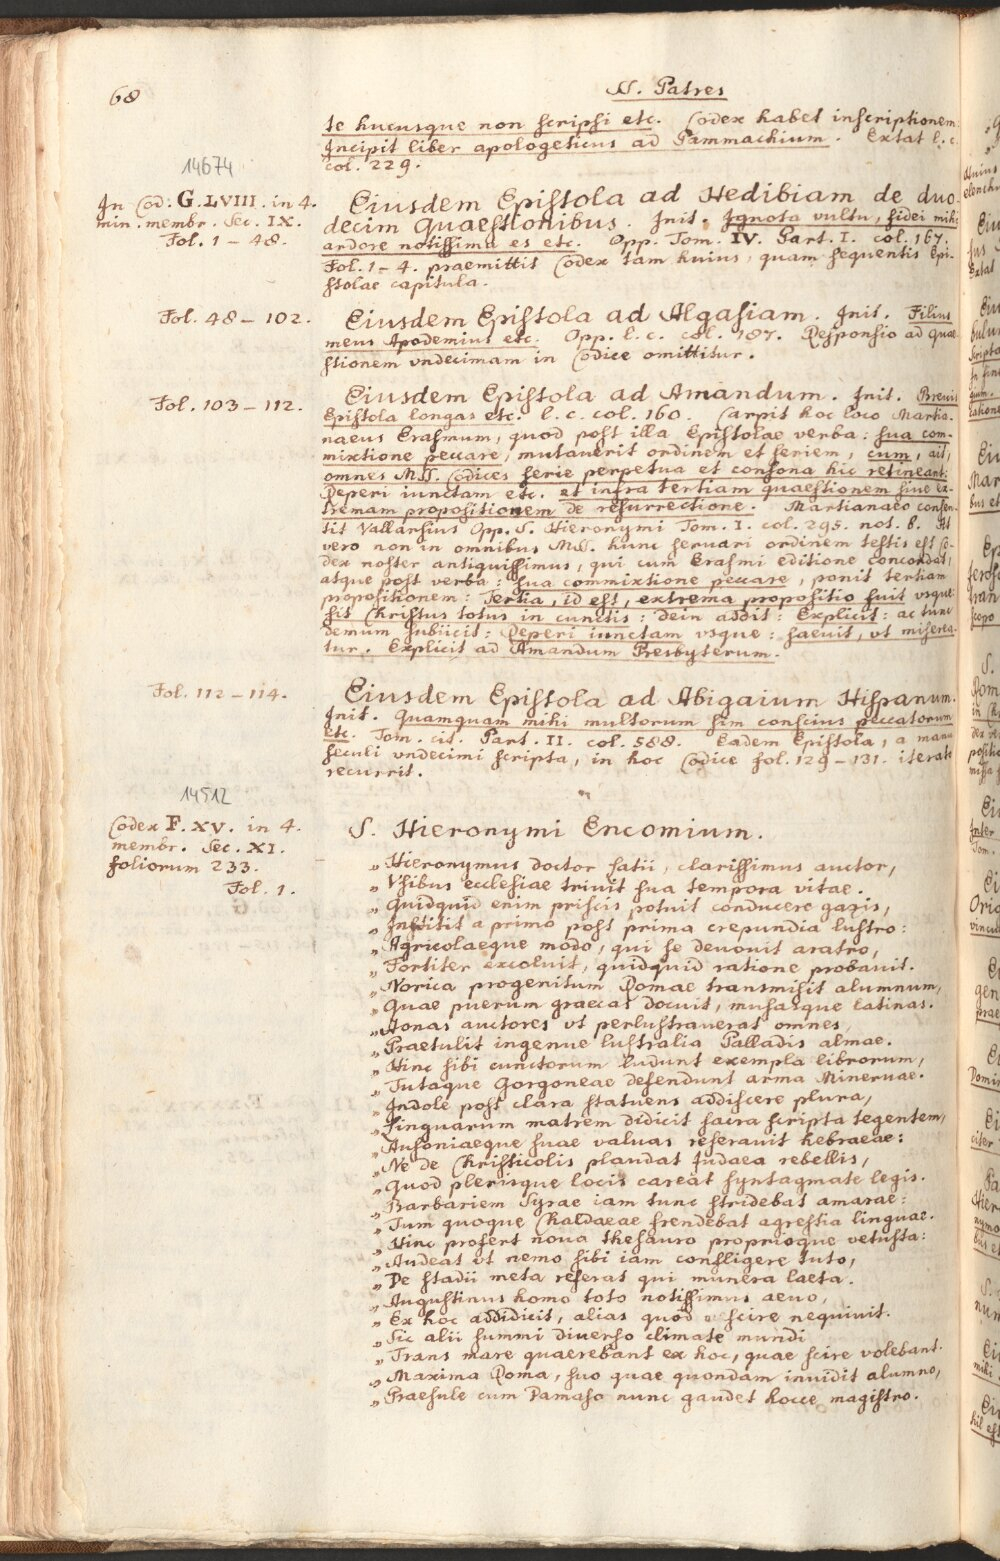 68
SS. Patres
te hucusque non scripsi etc. Codex habet inscriptionem:
Incipit liber apologeticus ad Pammachium. Extat l. c.
col. 229.
14674
In Cod. G. LVIII. in 4.
min. membr. Sec. IX.
Fol. 1 – 48.
Eiusdem Epistola ad Hedibiam de duo-
decim Quaestionibus. Init. Ignota vultu, fidei mihi
ardore notissima es etc. Opp. Tom. IV. Part. I. col. 167.
Fol. 1 – 4. praemittit Codex tam huius, quam sequentis Epi-
stolae capitula.
Fol. 48 – 102.
Eiusdem Epistola ad Algasiam. Init. Filius
meus Apodemius etc. Opp. l. c. col. 187. Responsio ad quae-
stionem vndecimam in Codice omittitur.
Fol. 103 – 112.
Eiusdem Epistola ad Amandum. Init. Breuis
Epistola longas etc. l. c. col. 160. Carpit hoc loco Martia-
naeus Erasmum, quod post illa Epistolae verba: sua com-
mixtione peccare, mutauerit ordinem et seriem, cum, ait,
omnes MSS. Codices serie perpetua et consona hic retineant:
Reperi iunctam etc. et infra tertiam quaestionem siue ex-
tremam propositionem de resurrectione. Martianaeo consen-
tit Vallarsius Opp. S. Hieronymi Tom. I. col. 295. not. b. At
vero non in omnibus MSS. hunc seruari ordinem testis est Co-
dex noster antiquissimus, qui cum Erasmi editione concordat,
atque post verba: sua commixtione peccare, ponit tertiam
propositionem: Tertia, id est, extrema propositio fuit vsque:
sit Christus totus in cunctis: dein addit: Explicit: ac tunc
demum subiicit: Reperi iunctam vsque: saeuit, vt miserea-
tur. Explicit ad Amandum Presbyterum.
Fol. 112 – 114.
Eiusdem Epistola ad Abigaium Hispanum.
Init. Quamquam mihi multorum sim conscius peccatorum
etc. Tom. cit. Part. II. col. 588. Eadem Epistola, a manu
seculi vndecimi scripta, in hoc Codice fol. 129 – 131. iterato
recurrit.
14512
Codex F. XV. in 4.
membr. Sec. XI.
foliorum 233.
Fol. 1.
S. Hieronymi Encomium.
„Hieronymus doctor satii, clarissimus auctor,
„Vsibus ecclesiae triuit sua tempora vitae.
„Quidquid enim priscis potuit conducere gazis,
„Institit a primo post prima crepundia lustro:
„Agricolaeque modo, qui se deuouit aratro,
„Fortiter excoluit, quidquid ratione probauit.
„Norica progenitum Romae transmisit alumnum,
„Quae puerum graecas docuit, musasque latinas.
„Aonas auctores vt perlustrauerat omnes,
„Praetulit ingenue lustralia Palladis almae.
„Hinc sibi cunctorum ludunt exempla librorum,
„Tutaque Gorgoneae defendunt arma Mineruae.
„Indole post clara statuens addiscere plura,
„Linguarum matrem didicit sacra scripta tegentem,
„Ausoniaeque suae valuas reserauit hebraeae:
„Ne de Christicolis plaudat Iudaea rebellis,
„Quod plerisque locis careat syntagmate legis.
„Barbariem Syrae iam tunc stridebat amarae:
„Tum quoque Chaldaeae frendebat agrestia linguae.
„Hinc profert noua thesauro proprioque vetusta:
„Audeat vt nemo sibi iam confligere tuto,
„De stadii meta referat qui munera laeta.
„Augustinus homo toto notissimus aeuo,
„Ex hoc addidicit, alias quod scire nequiuit.
„Sic alii summi diuerso climate mundi
„Trans mare quaerebant ex hoc, quae scire volebant.
„Maxima Roma, suo quae quondam inuidit alumno,
„Praesule cum Damaso nunc gaudet hocce magistro.